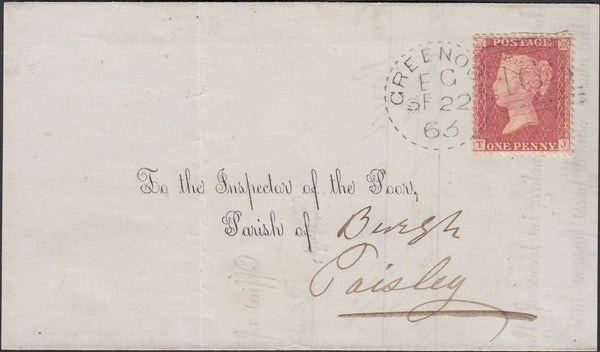 POSTAGE
GREENO
EG
SP 22
63
ONE PENNY
T J
To the Inspector of the Poor,
Parish of Burgh
Paisley